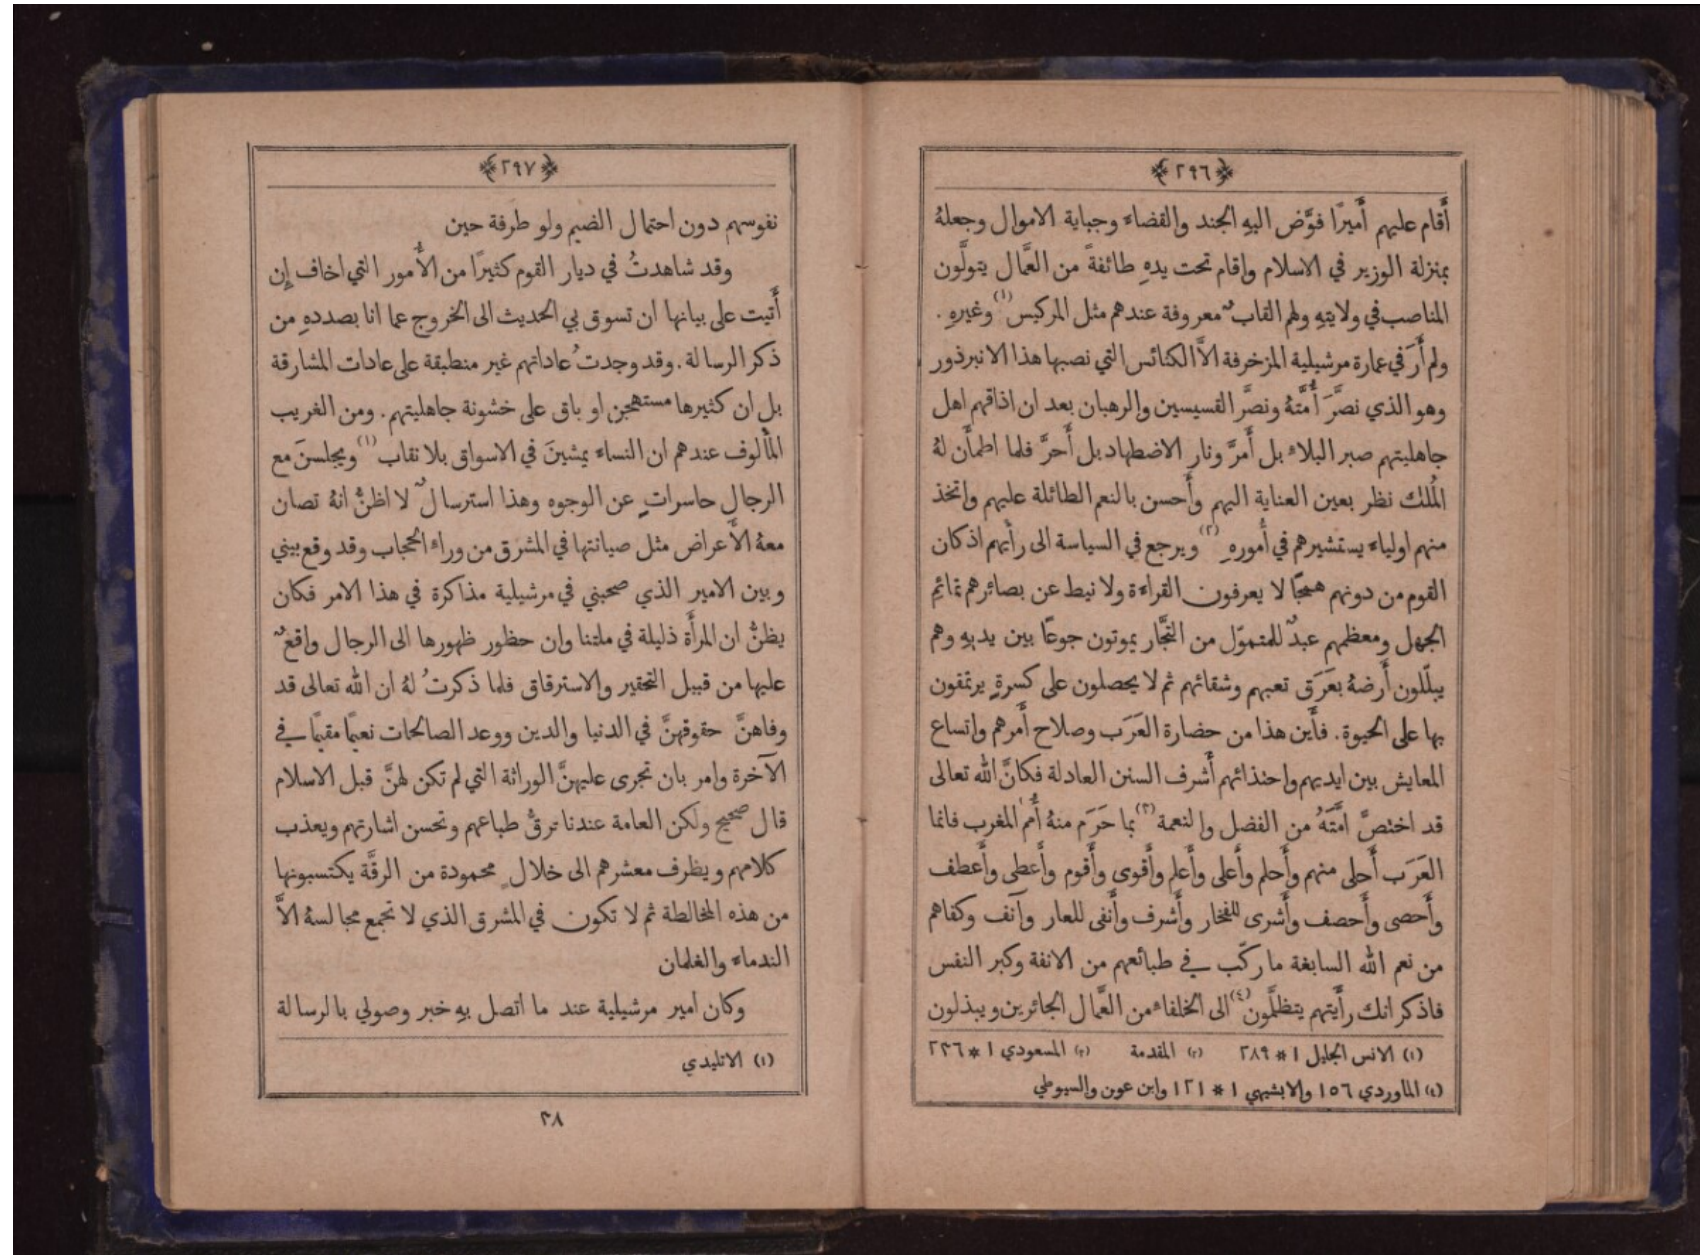 ﴿٢٩٦﴾
أَقام عليهم أَميرًا فوَّض اليهِ الجند والقضاء وجباية الاموال وجعلهُ
بمنزلة الوزير في الاسلام واقام تحت يدهِ طائفةً من العمَّال يتولَّون
المناصب في ولايتهِ ولهم القابٌ معروفة عندهم مثل المركيس (١) وغيرهِ .
ولم أَرَ في عمارة مرشيلية المزخرفة الاَّ الكنائس التي نصبها هذا الانبرذور
وهو الذي نصَّرَ أُمَّتهُ ونصَّر القسيسين والرهبان بعد ان اذاقهم اهل
جاهليتهم صبر البلاء بل أَمرَّ ونار الاضطهاد بل أَحرَّ فلما اطمأَن لهُ
المُلك نظر بعين العناية اليهم وأَحسن بالنعم الطائلة عليهم واتخذ
منهم اولياء يستشيرهم في أُمورهِ (٢) ويرجع في السياسة الى رأَيهم اذ كان
القوم من دونهم همجًا لا يعرفون القراءة ولا نيط عن بصائرهم تمائم
الجهل ومعظمهم عبدٌ للمتموّل من التجَّار يموتون جوعًا بين يديهِ وهم
يبلّلون أَرضهُ بعَرَق تعبهم وشقائهم ثم لا يحصلون على كسرةٍ يرتمقون
بها على الحيوة . فأَين هذا من حضارة العَرَب وصلاح أَمرهم واتساع
المعايش بين ايديهم واحتذائهم أَشرف السنن العادلة فكانَّ الله تعالى
قد اختصَّ امَّتَهُ من الفضل والنعمة (٣) بما حَرَم منهُ أُمم المغرب فانما
العَرَب أَحلى منهم وأَحلم وأَعلى وأَعلم وأَقوى وأَقوم وأَعطى وأَعطف
وأَحصى وأَحصف وأَشرى للفخار وأَشرف وأَنفى للعار وآنف وكفاهم
من نعم الله السابغة ما ركّب في طبائعهم من الانفة وكبر النفس
فاذكر انك رأَيتهم يتظلَّمون (٤) الى الخلفاء من العمَّال الجائرين ويبذلون
(١) الانس الجليل ١ * ٢٨٩ (٢) المقدمة (٣) المسعودي ١ * ٢٣٦
(٤) الماوردي ١٥٦ والابشيهي ١ * ١٢١ وابن عون والسيوطي
﴿٢٩٧﴾
نفوسهم دون احتمال الضيم ولو طرفة حين
وقد شاهدتُ في ديار القوم كثيرًا من الأُمور التي اخاف إِن
أَتيت على بيانها ان تسوق بي الحديث الى الخروج عما انا بصددهِ من
ذكر الرسالة . وقد وجدتُ عاداتهم غير منطبقة على عادات المشارقة
بل ان كثيرها مستهجن او باق على خشونة جاهليتهم . ومن الغريب
المأْلوف عندهم ان النساء يمشينَ في الاسواق بلا نقاب (١) ويجلسنَ مع
الرجال حاسراتٍ عن الوجوه وهذا استرسالٌ لا اظنُّ انهُ تصان
معهُ الأَعراض مثل صيانتها في المشرق من وراء الحجاب وقد وقع بيني
وبين الامير الذي صحبني في مرشيلية مذاكرة في هذا الامر فكان
يظنُّ ان المرأَة ذليلة في ملتنا وان حظور ظهورها الى الرجال واقعٌ
عليها من قبيل التحقير والاسترقاق فلما ذكرتُ لهُ ان الله تعالى قد
وفاهنَّ حقوقهنَّ في الدنيا والدين ووعد الصالحات نعيمًا مقيمًا في
الآخرة وامر بان تجرى عليهنَّ الوراثة التي لم تكن لهنَّ قبل الاسلام
قال صحيح ولكن العامة عندنا ترقُّ طباعهم وتحسن اشارتهم ويعذب
كلامهم ويظرف معشرهم الى خلالٍ محمودة من الرقَّة يكتسبونها
من هذه المخالطة ثم لا تكون في المشرق الذي لا تجمع مجالسهُ الاَّ
الندماء والغلمان
وكان امير مرشيلية عند ما اتصل بهِ خبر وصولي بالرسالة
(١) الاتليدي
٣٨